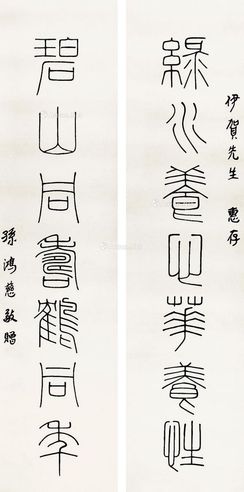 伊賀先生 惠存
綠水養心華養性
碧山同壽鶴同年
孫鴻慈敬贈